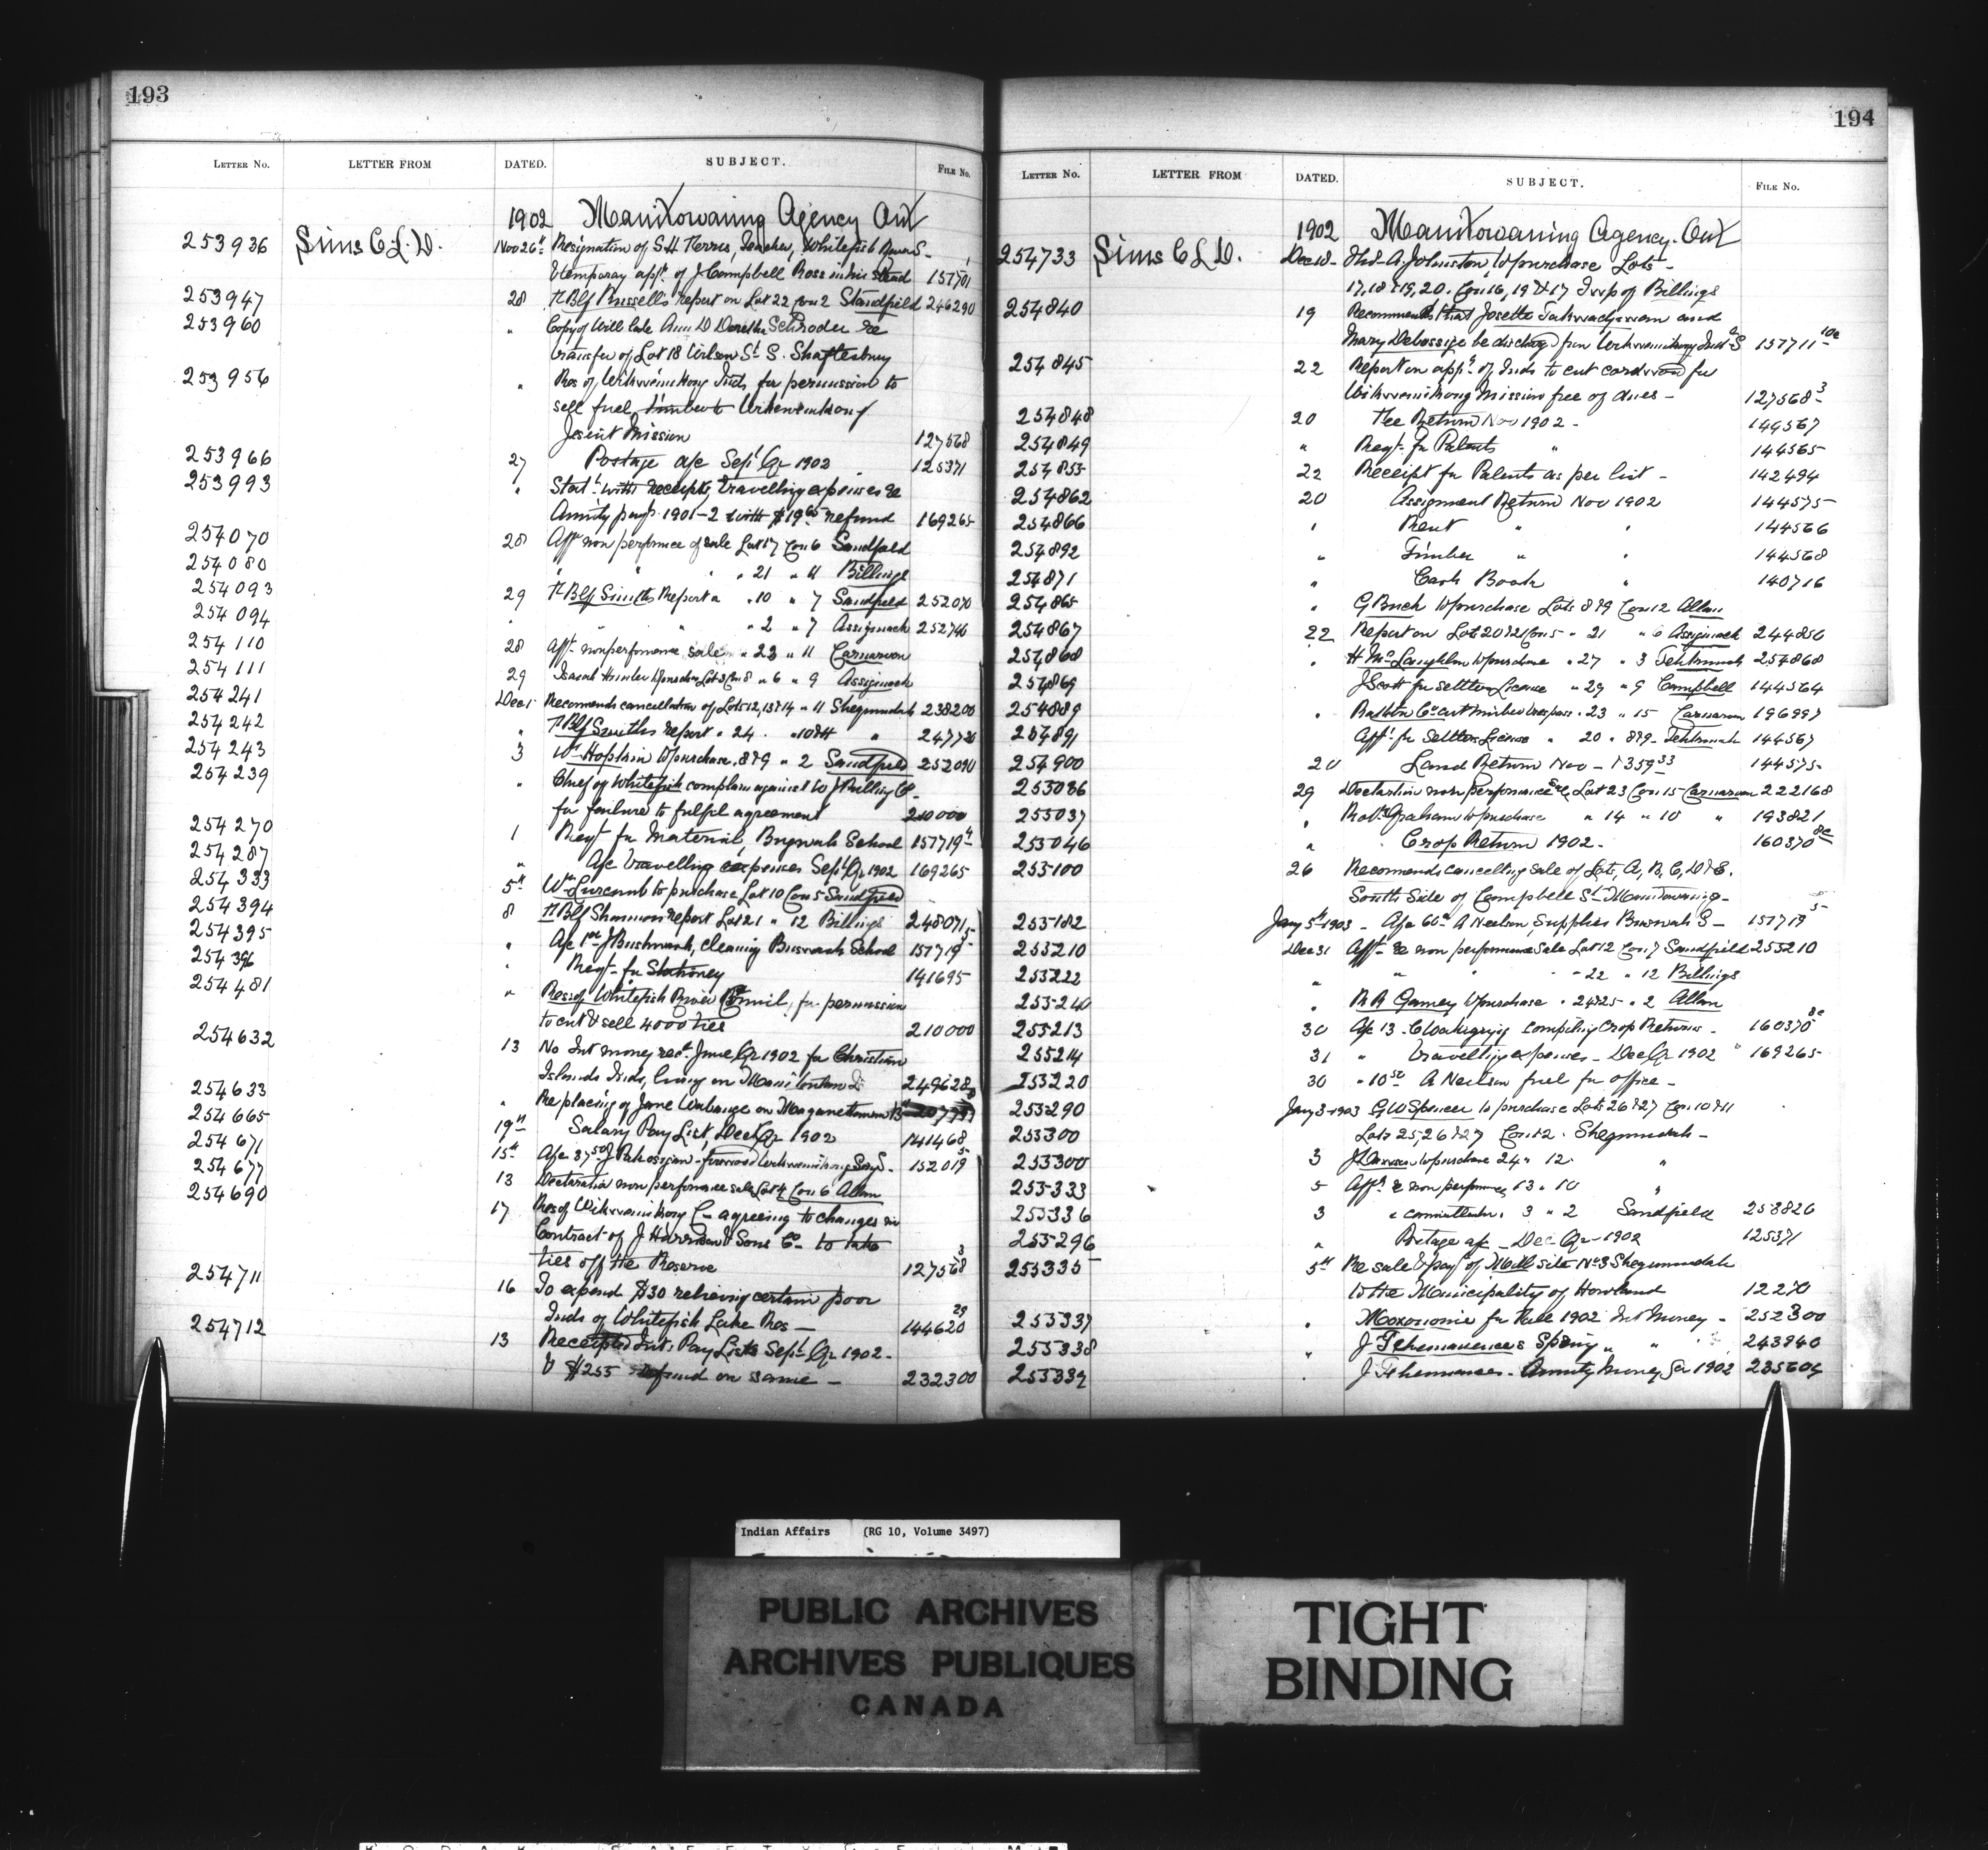 193
LETTER No. LETTER FROM DATED. SUBJECT. FILE No.
1902 Manitowaning Agency Ont
253936 Sims C.L.D. Nov 26th Resignation of S.H. Ferris, Teacher, Whitefish River S-
& temporary appt of J Campbell Ross in his stead 157701
253947 28 Russells report on Lot 22 Con 2 Sandfield 246290
253960 " Copy of Will late Ann D Dorothe Schroder re
transfer of Lot 18 Wilson St S. Shaftesbury
253956 " Res of Wikwemikong Inds for permission to
sell fuel timber to Wikwemikong
Jesuit Mission 127568
253966 27 Postage a/c Sept Qr 1902 125371
253993 " Statt with receipts, travelling expenses re
Annuity paymts 1901-2 with $19 65 refund 169265
254070 28 Afft non performce of sale Lot 17 Con 6 Sandfield
254080 " " " 21 " 11 Billings
254093 29 Smiths Report " 10 " 7 Sandfield 252070
254094 " " " 2 " 7 Assiginack 252746
254110 28 Afft nonperformance sale " 23 " 11 Carnarvon
254111 29 Isaiah Hunter to purchase Lot 3 Con 8 " 6 " 9 Assiginack
254241 Dec 1 Recomends cancellation of Lots 12, 13 & 14 " 11 Sheguindah 238200
254242 " Smiths report " 24 " 10 & 11 " 247730
254243 3 Wm Hopkin to purchase 8 & 9 " 2 Sandfield 252090
254239 " Chief of Whitefish complains against
for failure to fulfil agreement 210000
254270 1 Reqt for Material, Buzwah School 157719 4
254287 " A/c travelling expenses Sept Qr 1902 169265
254333 5th Wm Lurcomb to purchase Lot 10 Con 5 Sandfield
254394 8 Shannon report Lot 21 " 12 Billings 248071
254395 " A/c J Bushwash, cleaning Buswash School 157719 5
254396 " Reqt for Stationery 141695
254481 " Res of Whitefish River Council, for permission
to cut & sell 4000 ties 210000
254632 13 No Int money recd June Qr 1902 for Christian
Islands Inds, living on Manitoulin Is 249628
254633 " Re placing of Jane Wabauze on Maganettawan Bd
254665 19th Salary Pay List, Dec Qr 1902 141468
254671 15th A/c 37 50 J Pahossigan - firewood Wikwemikong 152019 5
254677 13 Declaration non performance sale Lot 4 Con 6 Allan
254690 17 Res of Wikwemikong C- agreeing to changes in
Contract of J Harrison & Sons Co to take
ties off the Reserve 127568 3
254711 16 To expend $30 relieving certain poor
Inds of Whitefish Lake Res - 144620 29
254712 13 Receipted Int Pay Lists Sept Qr 1902 -
& $255 refund on same - 232300
194
LETTER No. LETTER FROM DATED. SUBJECT. FILE No.
1902 Manitowaning Agency. Ont
254733 Sims C.L.D. Dec 18- A. Johnston, to purchase Lots -
17, 18 & 19, 20. Con 16, 19 & 17 Twp of Billings
254840 19 Recommends that Josette and
Mary Debossige be discharged from Wikwemikong Indl S 157711 10a
254845 22 Report on appn of Inds to cut cordwood for
Wikwemikong Mission free of dues - 127568 3
254848 20 Fee Return Nov 1902 - 144567
254849 " Reqt for Patents " 144565
254855 22 Receipt for Patents as per list - 142494
254862 20 Assignment Return Nov 1902 144575
254866 " Rent " " 144566
254892 " Timber " " 144568
254871 " Cash Book " 140716
254865 " G Buck to purchase Lots 8 & 9 Con 12 Allan
254867 22 Report on Lot 20 & 21 Con 5 " 21 " 6 Assiginack 244850
254868 " H McLaughlin to purchase " 27 " 3 Tehkummah 254868
254869 J Scott for settlers License " 29 " 9 Campbell 144564
254889 " cut timber trespass " 23 " 15 Carnarvon 196997
254891 Afft for Settlers License " 20 " 8 & 9 - Tehkummah 144567
254900 20 Land Return Nov - 1359 33 144575
255036 29 Declaration non performance Sale Lot 23 Con 15 Carnarvon 222168
255037 " Robt Graham to purchase " 14 " 10 " 193821
255046 " Crop Return 1902 - 160370 8c
255100 26 Recomends cancelling sale of Lots, A, B, C, D & E.
South Side of Campbell St Manitowaning -
255182 Jany 5th 1903 - A/c 60 A Neelson, Supplies Buswah S - 157719 5
255210 Dec 31 Afft re non performance Sale Lot 12 Con 7 Sandfield 255210
255222 " " " 22 " 12 Billings
255240 " R R Gamey to purchase " 24 & 25 " 2 Allan
255213 30 A/c 13 - compiling Crop Returns - 160370 8c
255214 31 " travelling expenses - Dec Qr 1902 " 169265
255220 30 " 10 50 A Neilson fuel for office -
255290 Jany 3-1903 G W Spencer to purchase Lots 26 & 27 Con 10 & 11
255300 Lots 25, 26 & 27 Con 12 - Sheguindah -
255300 3 J to purchase 24 " 12 "
255333 5 Afft re non performce 13 " 10 "
255336 3 " " 3 " 2 Sandfield 258826
255296 " Postage a/c - Dec Qr - 1902 125371
255335 5th Re sale & payt of Mill site No 3 Sheguindah
to the Municipality of Howland 12270
255337 " for Fall 1902 Int Money - 252300
255338 " J Spring " " 243940
255339 " J - Annuity Money for 1902 235604
Indian Affairs (RG 10, Volume 3497)
PUBLIC ARCHIVES
ARCHIVES PUBLIQUES
CANADA
TIGHT
BINDING